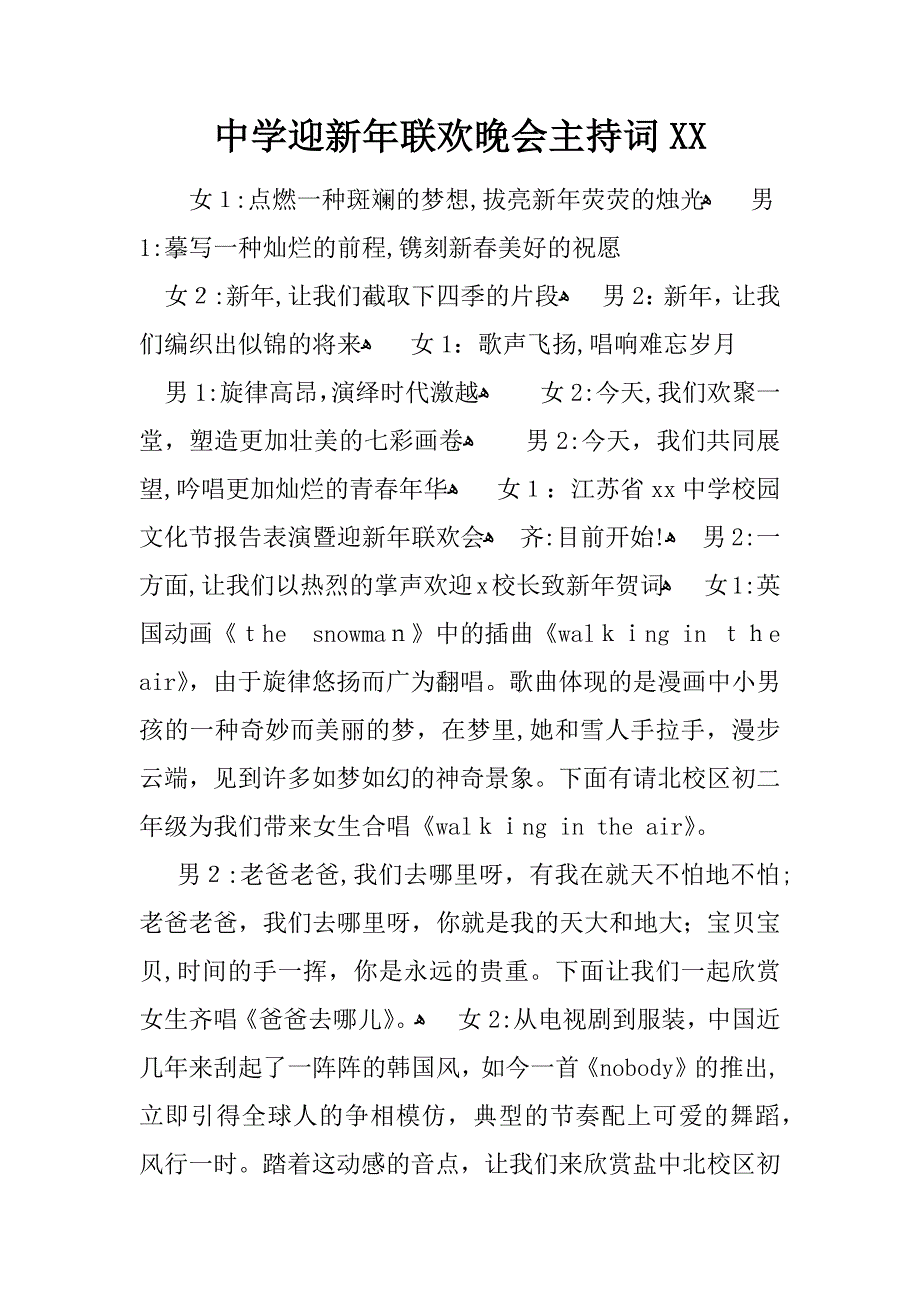 中学迎新年联欢晚会主持词XX
女１:点燃一种斑斓的梦想,拔亮新年荧荧的烛光ﻫ 男
1:摹写一种灿烂的前程,镌刻新春美好的祝愿
女２:新年,让我们截取下四季的片段ﻫ 男2：新年，让我
们编织出似锦的将来ﻫ 女1：歌声飞扬,唱响难忘岁月
男1:旋律高昂，演绎时代激越ﻫ 女2:今天,我们欢聚一
堂，塑造更加壮美的七彩画卷ﻫ 男2:今天，我们共同展
望,吟唱更加灿烂的青春年华ﻫ 女１：江苏省xx中学校园
文化节报告表演暨迎新年联欢会ﻫ 齐:目前开始!ﻫ 男2:一
方面,让我们以热烈的掌声欢迎x校长致新年贺词ﻫ 女1:英
国动画《ｔhe snowmaｎ》中的插曲《walｋｉng in ｔｈe
air》，由于旋律悠扬而广为翻唱。歌曲体现的是漫画中小男
孩的一种奇妙而美丽的梦，在梦里,她和雪人手拉手，漫步
云端，见到许多如梦如幻的神奇景象。下面有请北校区初二
年级为我们带来女生合唱《walｋｉng in the air》。
男２:老爸老爸,我们去哪里呀，有我在就天不怕地不怕;
老爸老爸，我们去哪里呀，你就是我的天大和地大；宝贝宝
贝,时间的手一挥，你是永远的贵重。下面让我们一起欣赏
女生齐唱《爸爸去哪儿》。ﻫ 女2:从电视剧到服装，中国近
几年来刮起了一阵阵的韩国风，如今一首《nobody》的推出,
立即引得全球人的争相模仿，典型的节奏配上可爱的舞蹈，
风行一时。踏着这动感的音点，让我们来欣赏盐中北校区初